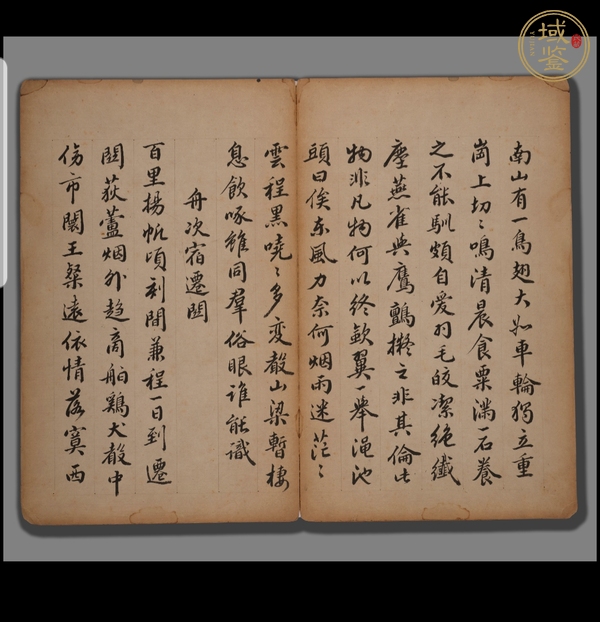 南山有一鳥翅大如車輪獨立重
崗上切〻鳴清晨食粟滿一石養
之不能馴頗自愛羽毛皎潔絕纖
塵燕雀與鷹鸇擬之非其倫此
物非凡物何以終歛翼一舉渑池
頭曰俟東風力奈何烟雨迷茫〻
雲程黑嘵〻多变敲山梁暫棲
息飲啄雖同羣俗眼誰能識
舟次宿遷関
百里揚帆頃刻間兼程一日到遷
関荻蘆烟外趋商舶鷄犬敲中
傍市闤王粲遠依情落寞西
域鉴